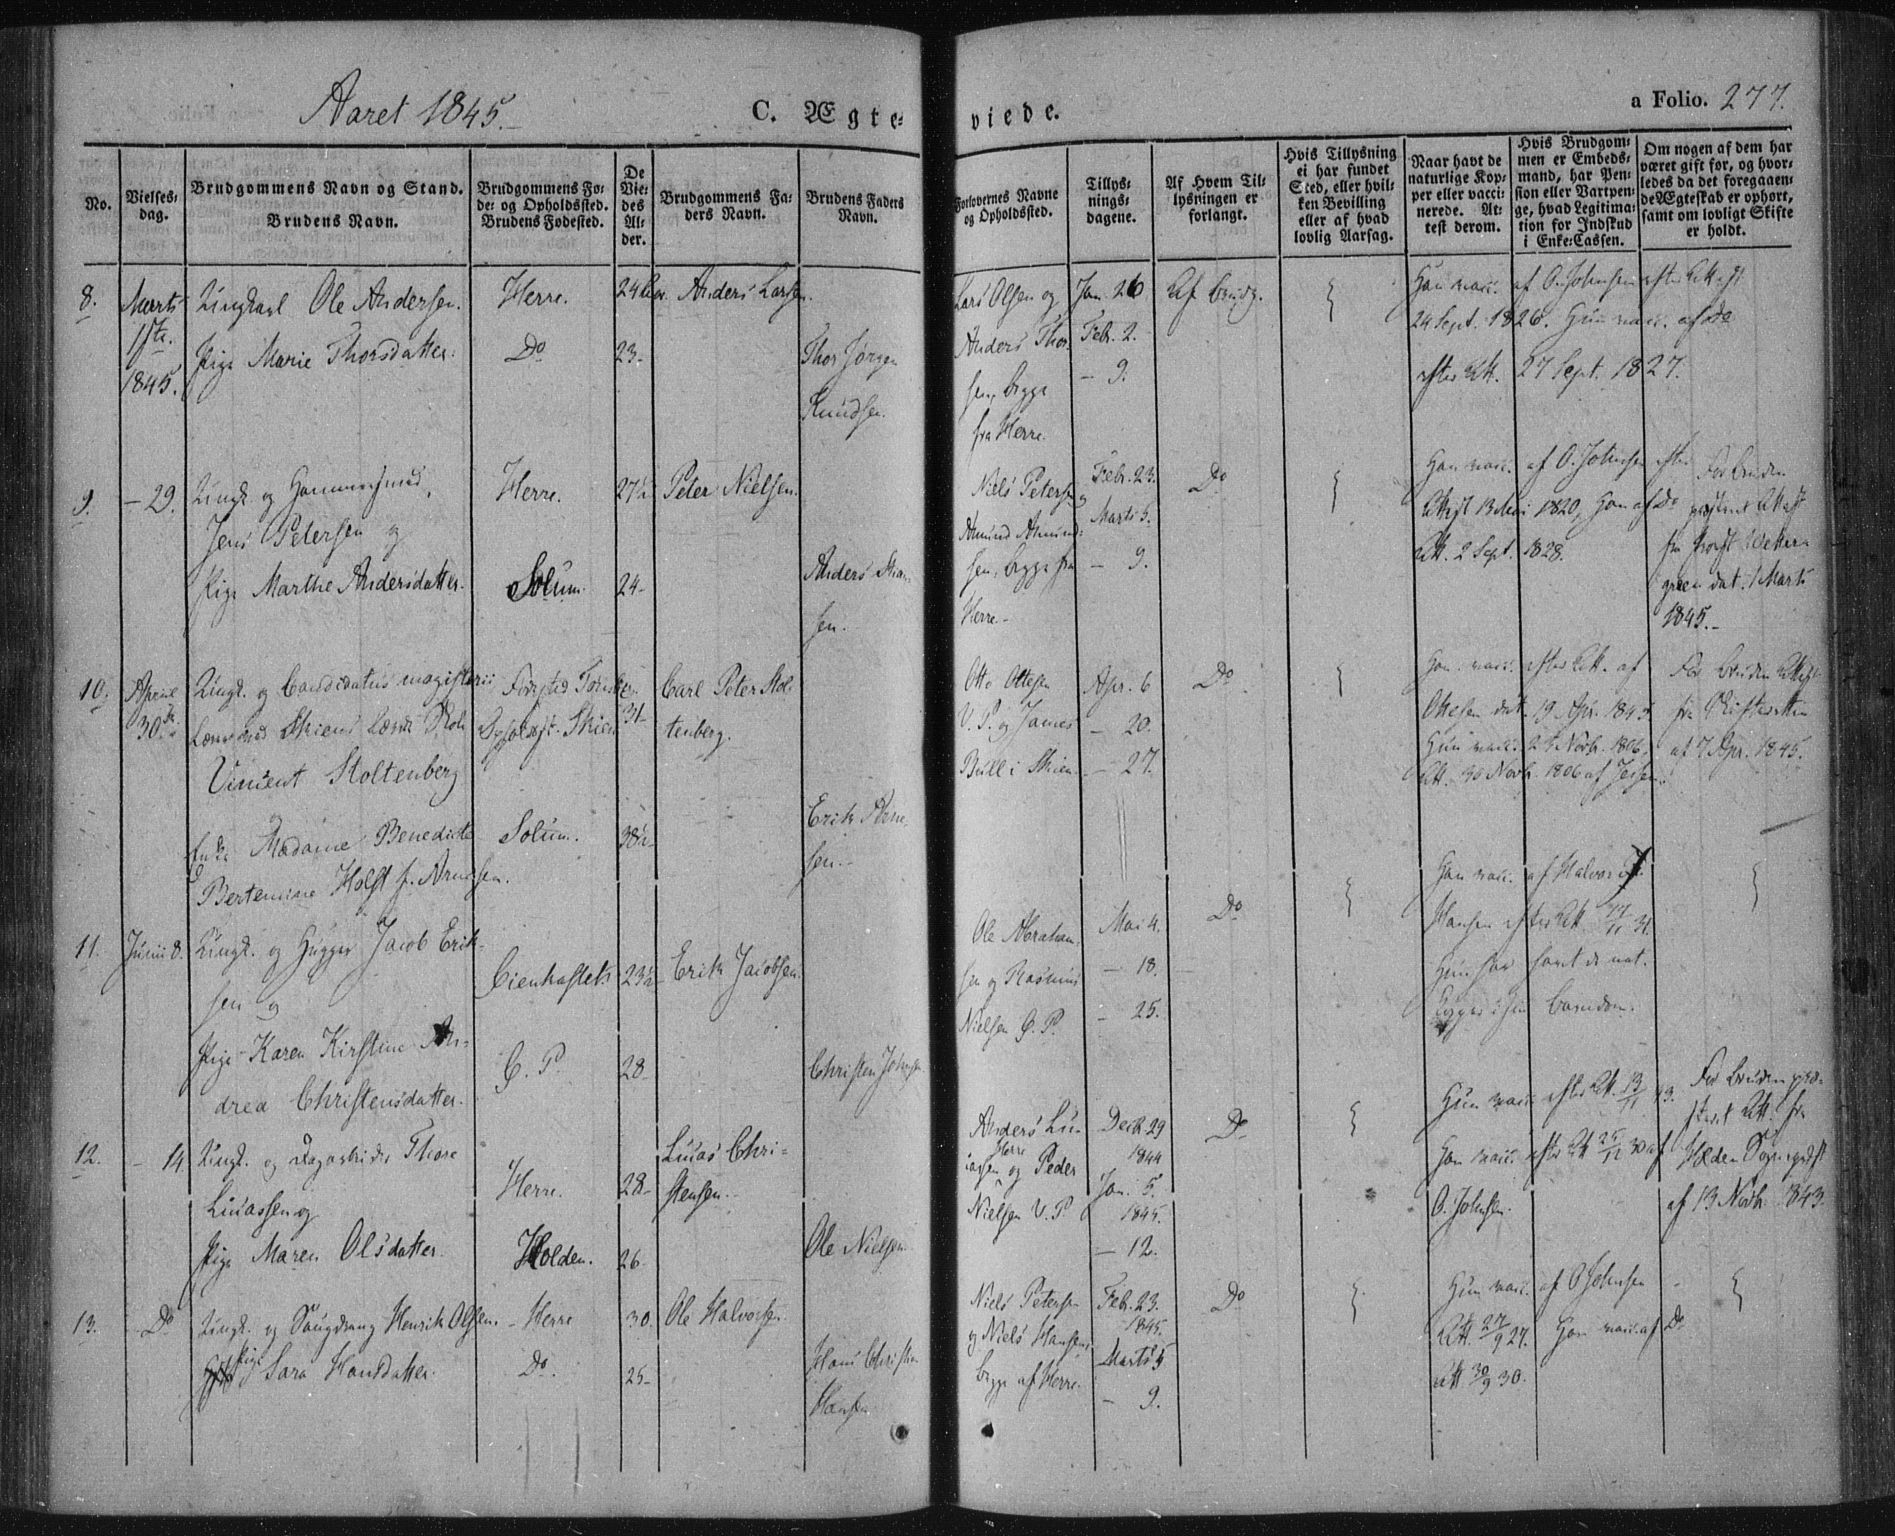 Aaret 1845.
C. Ægte-
viede.
a Folio. 277.
No.
Vielses-
dag.
Brudgommens Navn og Stand.
Brudens Navn.
Brudgommens Fø-
de- og Opholdssted.
Brudens Fødested.
De
Vie-
des
Al-
der.
Brudgommens Fa-
ders Navn.
Brudens Faders
Navn.
Forlovernes Navne
og Opholdssted.
Tillys-
nings-
dagene.
Af Hvem Til-
lysningen er
forlangt.
Hvis Tillysning
ei har fundet
Sted, eller hvil-
ken Bevilling
eller af hvad
lovlig Aarsag.
Naar havt de
naturlige Kop-
per eller vacci-
nerede. At-
test derom.
Hvis Brudgom-
men er Embeds-
mand, har Pen-
sion eller Vartpen-
ge, hvad Legitima-
tion for Indskud
i Enke-Cassen.
Om nogen af dem har
været gift før, og hvor-
ledes da det foregaaen-
de Ægteskab er ophørt,
samt om lovligt Skifte
er holdt.
8.
Marts
1ste
1845.
Ungkarl Ole Andersen.
Pige Marie Thorsdatter.
Herre.
Do
24
23-
Anders Larsen.
Thor Jørgen
Knudsen.
Lars Olsen og
Anders Thor-
sen, begge
fra Herre.
Jan. 26
Febr. 2.
- 9.
Af Brudg.
Han vacc. af O. Johnsen efter Att. af
24 Sept. 1826. Hun vacc. af do
efter Att. 27 Sept. 1827.
9.
- 29.
Ungk. og Hammersmed,
Jens Petersen og
Pige Marthe Andersdatter.
Herre.
Solum.
27½
24-
Peter Nielsen.
Anders
sen.
Niels Petersen
Amund Amund-
sen, begge fra
Herre.-
Febr. 23.
Marts 5.
- 9.
Do
Han vacc. af O. Johnsen efter
Attest 13 Mai 1820, Hun af Do
Att. 2 Sept. 1828.
For Bruden
præsteret Attest
fra Provst
green dat. 1 Marts
1845.-
10.
Aprile
30te
Ungk. og Candidatus magisterii
Lærer ved Skiens Lærde Skole
Vincent Stoltenberg
Enke Madame Benedicte
Bertemine Holst f. Arnesen.
Fødested Tønsberg
Opholdst. Skien
Solum.
31-
38½
Carl Peter Stol-
tenberg.
Erik Arne-
sen.-
Otto Ottesen
V. P. og James
Bull i Skien
Apr. 6
- 20.
- 27.
Do
Han vacc. efter Att. af
Ottesen dat. 19 Apr. 1845
Hun vacc. 24 Novb. 1806.
Att. 30 Novb. 1806 af
For Bruden Attest
fra Skifteretten
af 7 Apr. 1845.
11.
Junii 8.
Ungk. og Hugger Jacob Erik-
sen og
Pige Karen Kirstine An-
drea Christensdatter.
G. P.
23½
28-
Erik Jacobsen.
Christen Johnsen
Ole Abraham-
sen og Rasmus
Nielsen G. P.
Mai 4.
- 18.
- 25.
Do
Han vacc. af Halvor
Hansen efter Att. 17/11 31.
Hun har havt de nat.
Kopper i sin Barndom.
12.
- 14
Ungk. og Dagarbeider Thore
Lucassen og
Pige Maren Olsdatter.
Herre.
Holden.
28-
26.
Lucas Chri-
stensen.
Ole Nielsen
Anders Lu-
Herre
cassen og Peder
Nielsen V. P.
Decb. 29
1844
Jan. 5.
1845.
- 12.
Do
Hun vacc. efter Att. 13/11 43.
Han vacc. efter Att 25/11 30 af
O. Johnsen.
For Bruden præ-
steret Att. fra
Holden Sognepræst
af 13 Novb. 1843.
13.
- Do
Ungk. og Saugdreng Henrik Olsen.
Pige Sara Hansdatter.
Herre
Do.
30.
25-
Ole Halvorsen
Hans Christian
Hansen
Niels Petersen
og Niels Hansen,
begge af Herre.
Febr. 23.
1845.
Marts 5
- 9.
Do
Hun vacc. af O Johnsen
Att. 27/9 27. Han vacc. af Do
Att 30/9 30.